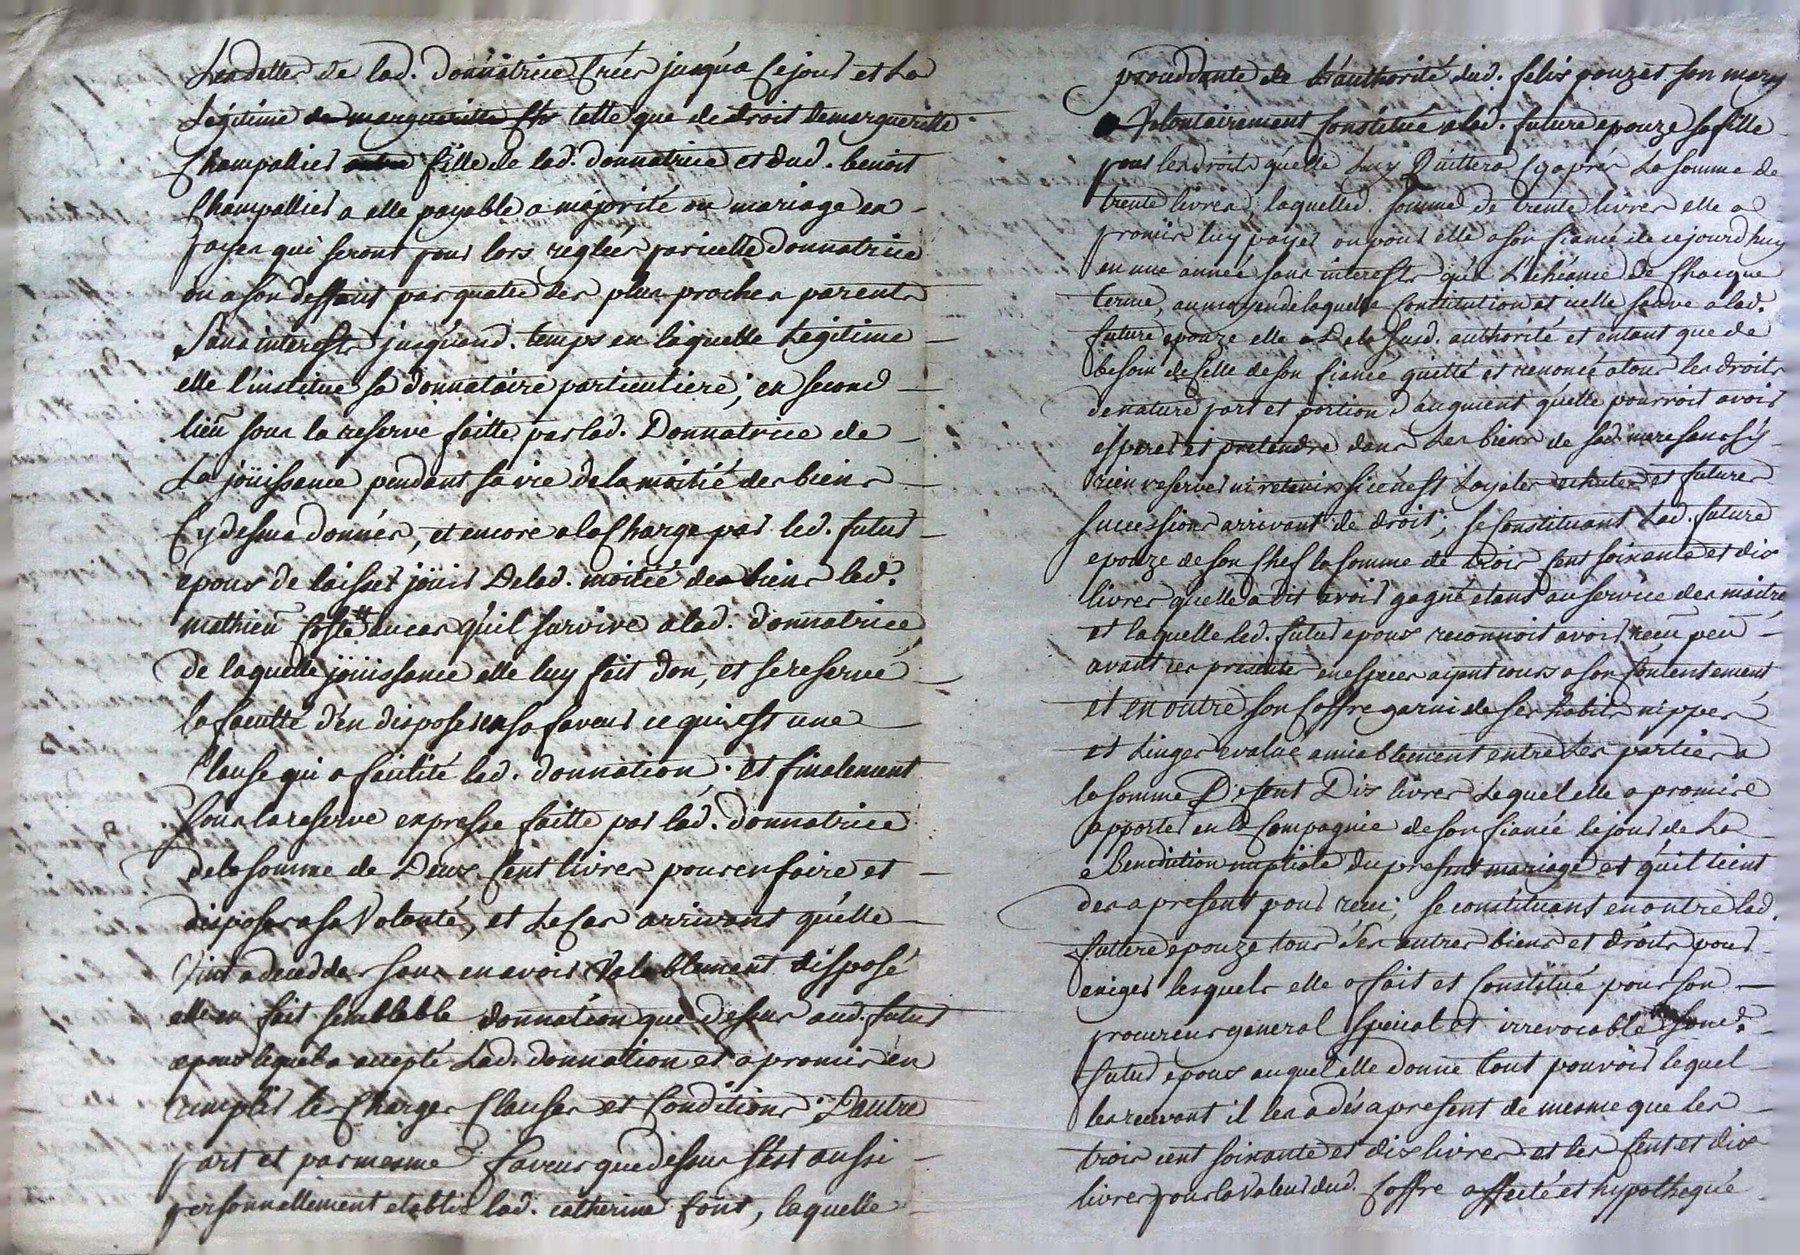 Les dettes de lad. donnatrice Crées jusqu'a Cejour et La
Légitime de margueritte telle que de droit de margueritte
Champallier fille de lad. donnatrice et dud. benoit
Champallier a elle payable a majorité ou mariage en
payes qui seront pour lors reglees par icelle donnatrice
ou a son deffaut par quatre des plus proches parents
sans interests jusqu'aud. temps en laquelle Légitime
elle l'institue sa donnataire particuliere; en second
lieu sous la reserve faitte par lad. Donnatrice de
La joüissance pendant sa vie de la moitié des biens
Cy dessus donnés, et encore a la Charge par led. futur
epoux de laisser joüir De lad. moitié des biens led.
mathieu Coste au cas qu'il survive a lad. donnatrice
de laquelle joüissance elle luy fait don, et se reserve
la faculté d'en disposer en sa faveur ce qui est une
Clause qui a facilité lad. donnation; et finalement
sous la reserve expresse faitte par lad. donnatrice
de la somme de Deux Cent livres pour en faire et
disposer a sa Volonté, et Le Cas arrivant qu'elle
vint a decedder sans en avoir Valablement disposé
elle en fait semblable donnation que dessus aud. futur
epoux lequel a accepté Lad. donnation et a promis en
remplir les Charges Clauses et Conditions; D'autre
part et par mesme faveur que dessus s'est aussi
personnellement etablie lad. catherine font, laquelle
proceddante de L'authorité dud. felix pouzet son mary
a Volontairement Constitué a lad. future epouze sa fille
pour les droits qu'elle Luy Quittera Cy aprés La somme de
trente livres laquelle d. somme de trente livres elle a
promis luy payer ou pour elle a son fiancé de ce jourd'huy
en une année sans interests qu'a L'échéance de Chaque
terme, au moyen de laquelle Constitution et icelle sauve a lad.
future epouze elle a De la susd. authorité et entant que de
besoin de Celle de son fiancé quitté et renoncé a tous les droits
de nature part et portion d'augment qu'elle pourroit avoir
esperer et pretendre dans Les biens de sad. mere sans o sÿ
rien reserver ni retenir si ce n'est Loyales echutes et futures
successions arrivant de droit; se Constituant Lad. future
epouze de son Chef la somme de trois Cent soixante et dix
livres qu'elle a dit avoir gagné etant au service des maitres
et laquelle led. futur epoux reconnoit avoir reçu peu
avant ces presentes en especes ajant cours a son Contentement
et en outre son Coffre garni de ses habits nippes
et Linges evalué amiablement entre Les parties a
la somme De Cent Dix livres Lequel elle a promis
apporter en la Compagnie de son fiancé le jour de La
Benediction nuptiale du present mariage et qu'il tient
des a present pour reçu; se constituant en outre lad.
future epouze tous ses autres biens et droits pour
exiger lesquels elle a fait et Constitué pour son
procureur general special et irrevocable sond.
futur epoux auquel elle donne tout pouvoir lequel
les recevant il les a dés a present de mesme que les
trois cent soixante et dix livres et les Cent et dix
livres pour la Valeur dud. Coffre affecté et hypothequé